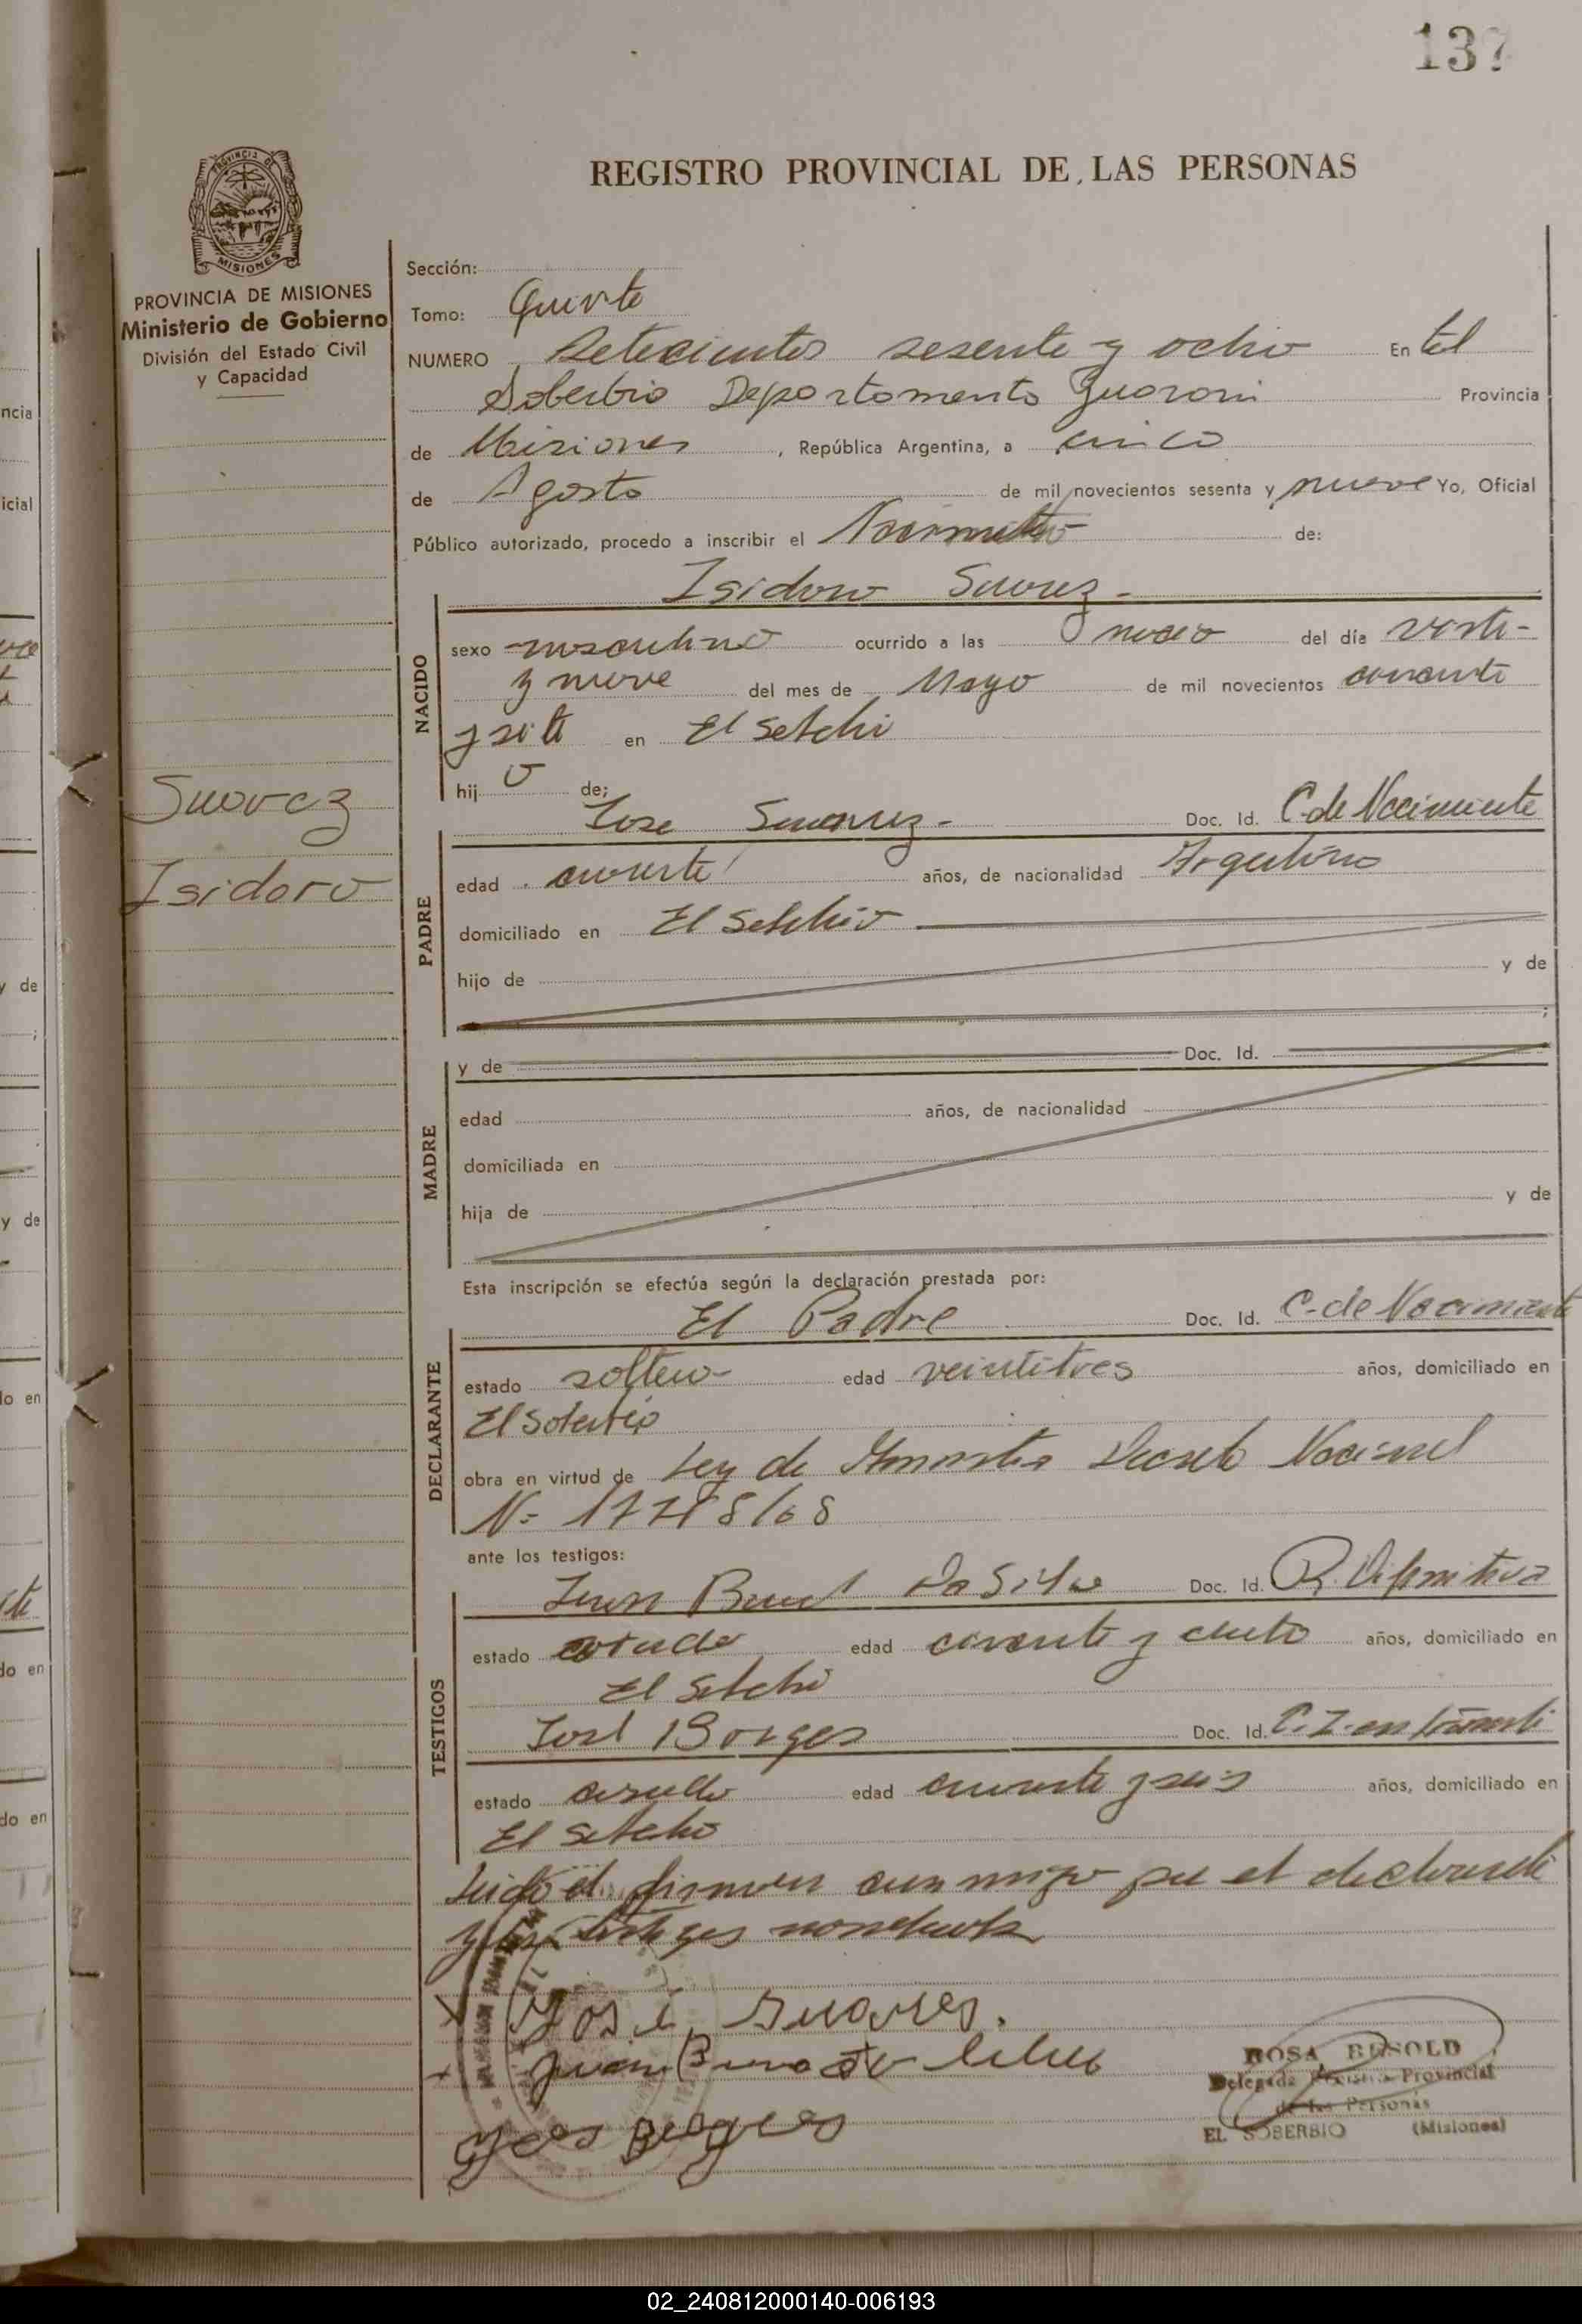 137
REGISTRO PROVINCIAL DE LAS PERSONAS
PROVINCIA DE MISIONES
PROVINCIA DE MISIONES
Ministerio de Gobierno
División del Estado Civil
y Capacidad
Sección:
Tomo: Quinto
NUMERO Setecientos sesenta y ocho En El
Soberbio Departamento Guarani Provincia
de Misiones, República Argentina, a cinco
de Agosto de mil novecientos sesenta y nueve Yo, Oficial
Público autorizado, procedo a inscribir el Nacimiento de:
Isidoro Suarez -
NACIDO
sexo masculino ocurrido a las del día veinti-
y nueve del mes de Mayo de mil novecientos cuarenta
y siete en El Soberbio
hijo de;
Suarez
Isidoro
PADRE
Jose Suarez - Doc. Id. C. de Nacimiento
edad cuarenta años, de nacionalidad Argentino
domiciliado en El Soberbio
hijo de y de
;
MADRE
y de Doc. Id.
edad años, de nacionalidad
domiciliada en
hija de y de
Esta inscripción se efectúa según la declaración prestada por:
DECLARANTE
El Padre Doc. Id. C. de Nacimiento
estado soltero - edad veintitres años, domiciliado en
El Soberbio
obra en virtud de Ley de Amnistia Decreto Nacional
Nº
ante los testigos:
TESTIGOS
Juan Da Silva Doc. Id. R. Definitiva
estado edad cuarenta y cuatro años, domiciliado en
El Soberbio
José Borges Doc. Id. C. I. en trámite
estado casado edad cuarenta y seis años, domiciliado en
El Soberbio
Leido el firman conmigo el declarante
y los testigos nombrados
José Suares.
Juan
ROSA BUSOLD
Delegada Registro Provincial
de las Personas
EL SOBERBIO (Misiones)
02_240812000140-006193